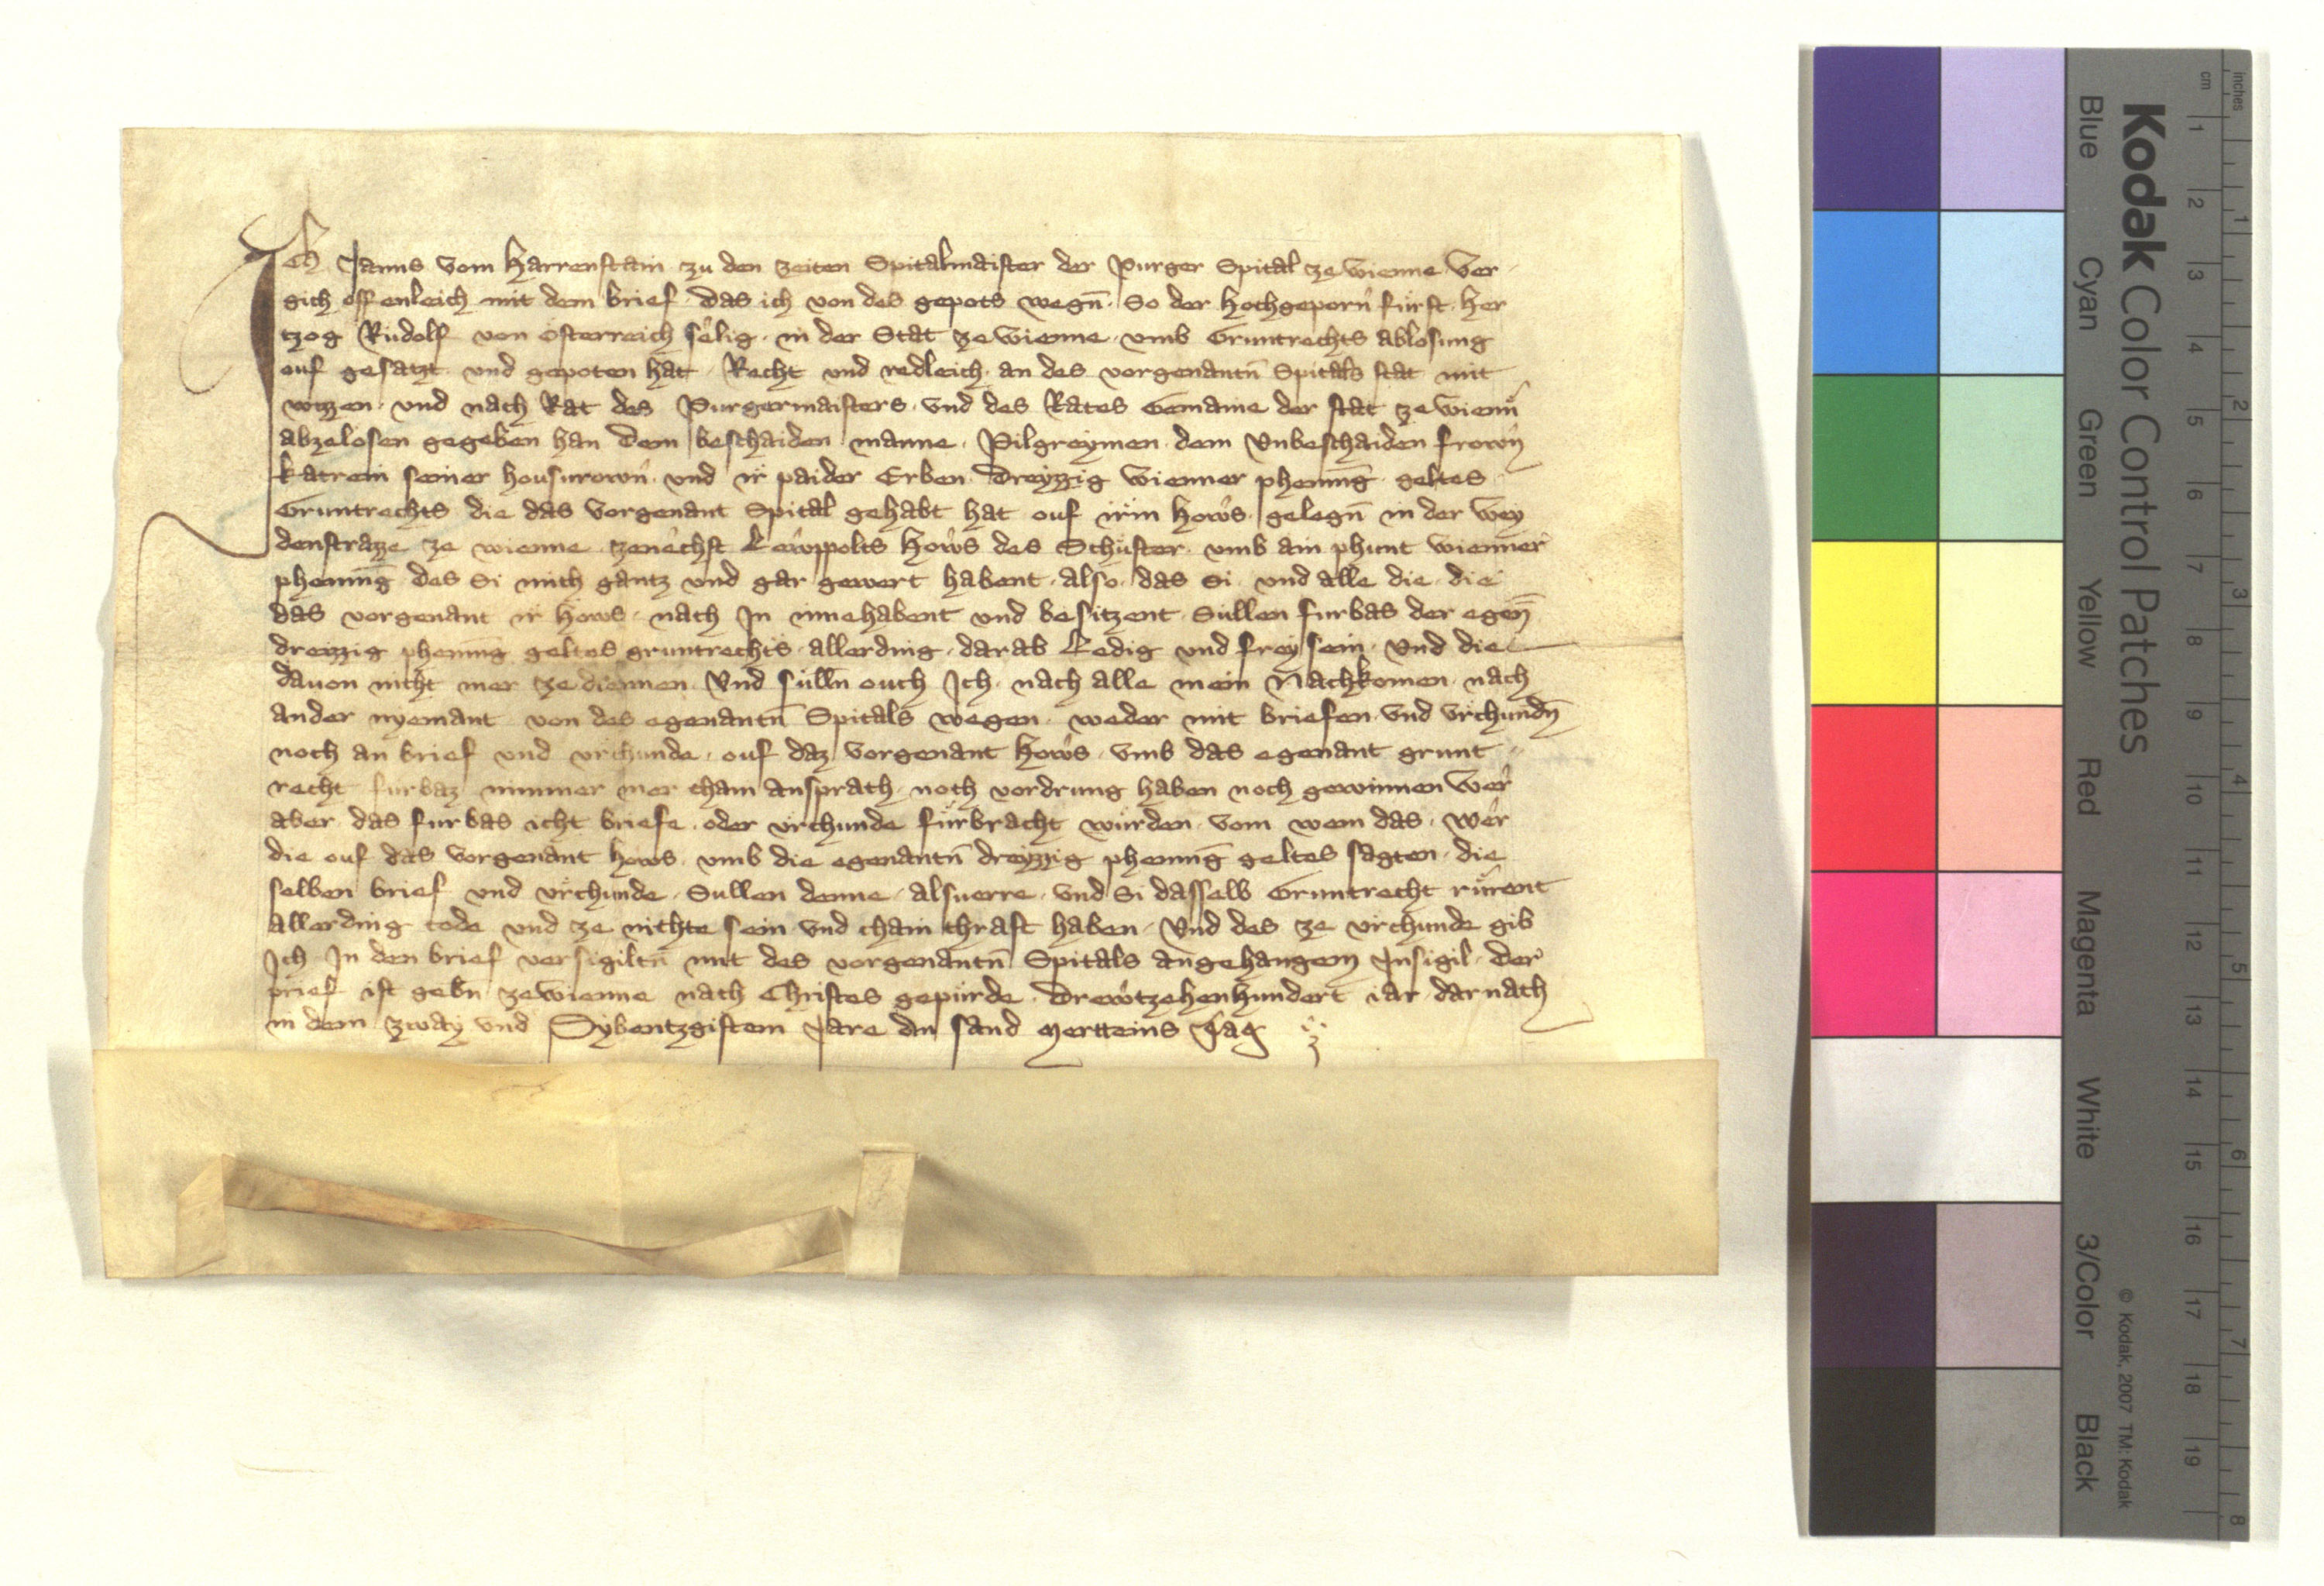 Ich Janns vom Harrenstain zu den zeiten Spitalmaister der Purger Spital ze wienne Ver
gich offenleich mit dem brief das ich von des gepots wegn̄ So der Hochgeporn fürst Her
tzog Rudolf von Österreich sělig in der Stat ze wienne vmb Gruntrechts ablosung
ouf gesatzt vnd gepoten hat Recht vnd redleich an des vorgenantn̄ Spitals stat mit
wizzen vnd nach Rat des Purgermaisters vnd des Rates Gemaine der stat ze wienn
abzelosen gegeben han dem beschaiden manne Pilgreymen dem Vnbeschaiden frown
katrein seiner housurown vnd ir paider Erben dreyzzig wienner phenninḡ geltes
Gruntrechts die das vorgenant Spital gehabt hat ouf irm Hows gelegn̄ in der wey
denstrazze ze wienne zenechst Lewppolts Hows des Schuster vmb ain phunt wienner
phenninḡ des Si mich gantz vnd gar gewert habent also das Si vnd alle die die
das vorgenant ir hows nach In innehabent vnd besitzent Sullen furbas der egen̄
dreizzig phenninḡ geltes gruntrechts allerding darab Ledig vnd frey sein vnd die
dauon nicht mer ze diennen Vnd sulln̄ ouch Ich nach alle mein Nachkomen nach
ander nyemant von des egenantn̄ Spitals wegen weder mit briefen vnd vrchundn̄
noch an brief vnd vrchunde ouf daz vorgenant Hows vmb das egenant grunt
recht furbaz nimmer mer chain ansprach noch vordrung haben noch gewinnen Wer
aber das furbas icht briefe oder vrchunde fürbracht würden vom wem das wer
die ouf das vorgenant hows vmb die egenantn̄ dreyzzig phenninḡ geltes sagten die
selben brief vnd vrchunde Sullen denne alsuerre vnd Si dasselb Gruntrecht rürent
allerding tode vnd ze nichte sein vnd chain chraft haben Vnd des ze vrchunde gib
Ich In den brief versigiltn̄ mit des vorgenantn̄ Spitals angehangem Insigil der
prief ist gebn̄ ze wienne nach Christes gepürde drewtzehenhundert iar darnach
in dem zway vnd Sybentzgistem Jare an sand Mertteins Tag
Kodak Color Control Patches
© Kodak, 2007 TM: Kodak
Blue Cyan Green Yellow Red Magenta White 3/Color Black
cm 1 2 3 4 5 6 7 8 9 10 11 12 13 14 15 16 17 18 19
inches 1 2 3 4 5 6 7 8